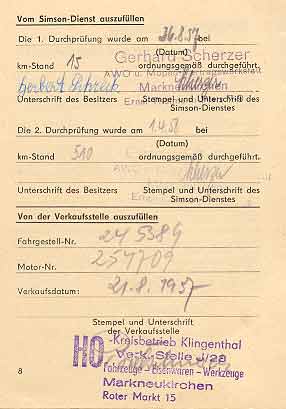 Vom Simson-Dienst auszufüllen
Die 1. Durchprüfung wurde am 26.8.57 bei
(Datum)
Gerhard Scherzer
km-Stand 15 ordnungsgemäß durchgeführt.
AWO u. Moped-Vertragswerkstatt
Markneukirchen
Herbert
Unterschrift des Besitzers Stempel und Unterschrift des
Simson-Dienstes
Die 2. Durchprüfung wurde am 1.4.58 bei
(Datum)
km-Stand 510 ordnungsgemäß durchgeführt.
Unterschrift des Besitzers Stempel und Unterschrift des
Simson-Dienstes
Von der Verkaufsstelle auszufüllen
Fahrgestell-Nr. 245389
Motor-Nr. 254709
Verkaufsdatum: 21.8.1957
Stempel und Unterschrift
der Verkaufsstelle
HO-Kreisbetrieb Klingenthal
Verk.-Stelle
Fahrzeuge - Eisenwaren - Werkzeuge
Markneukirchen
8 Roter Markt 15